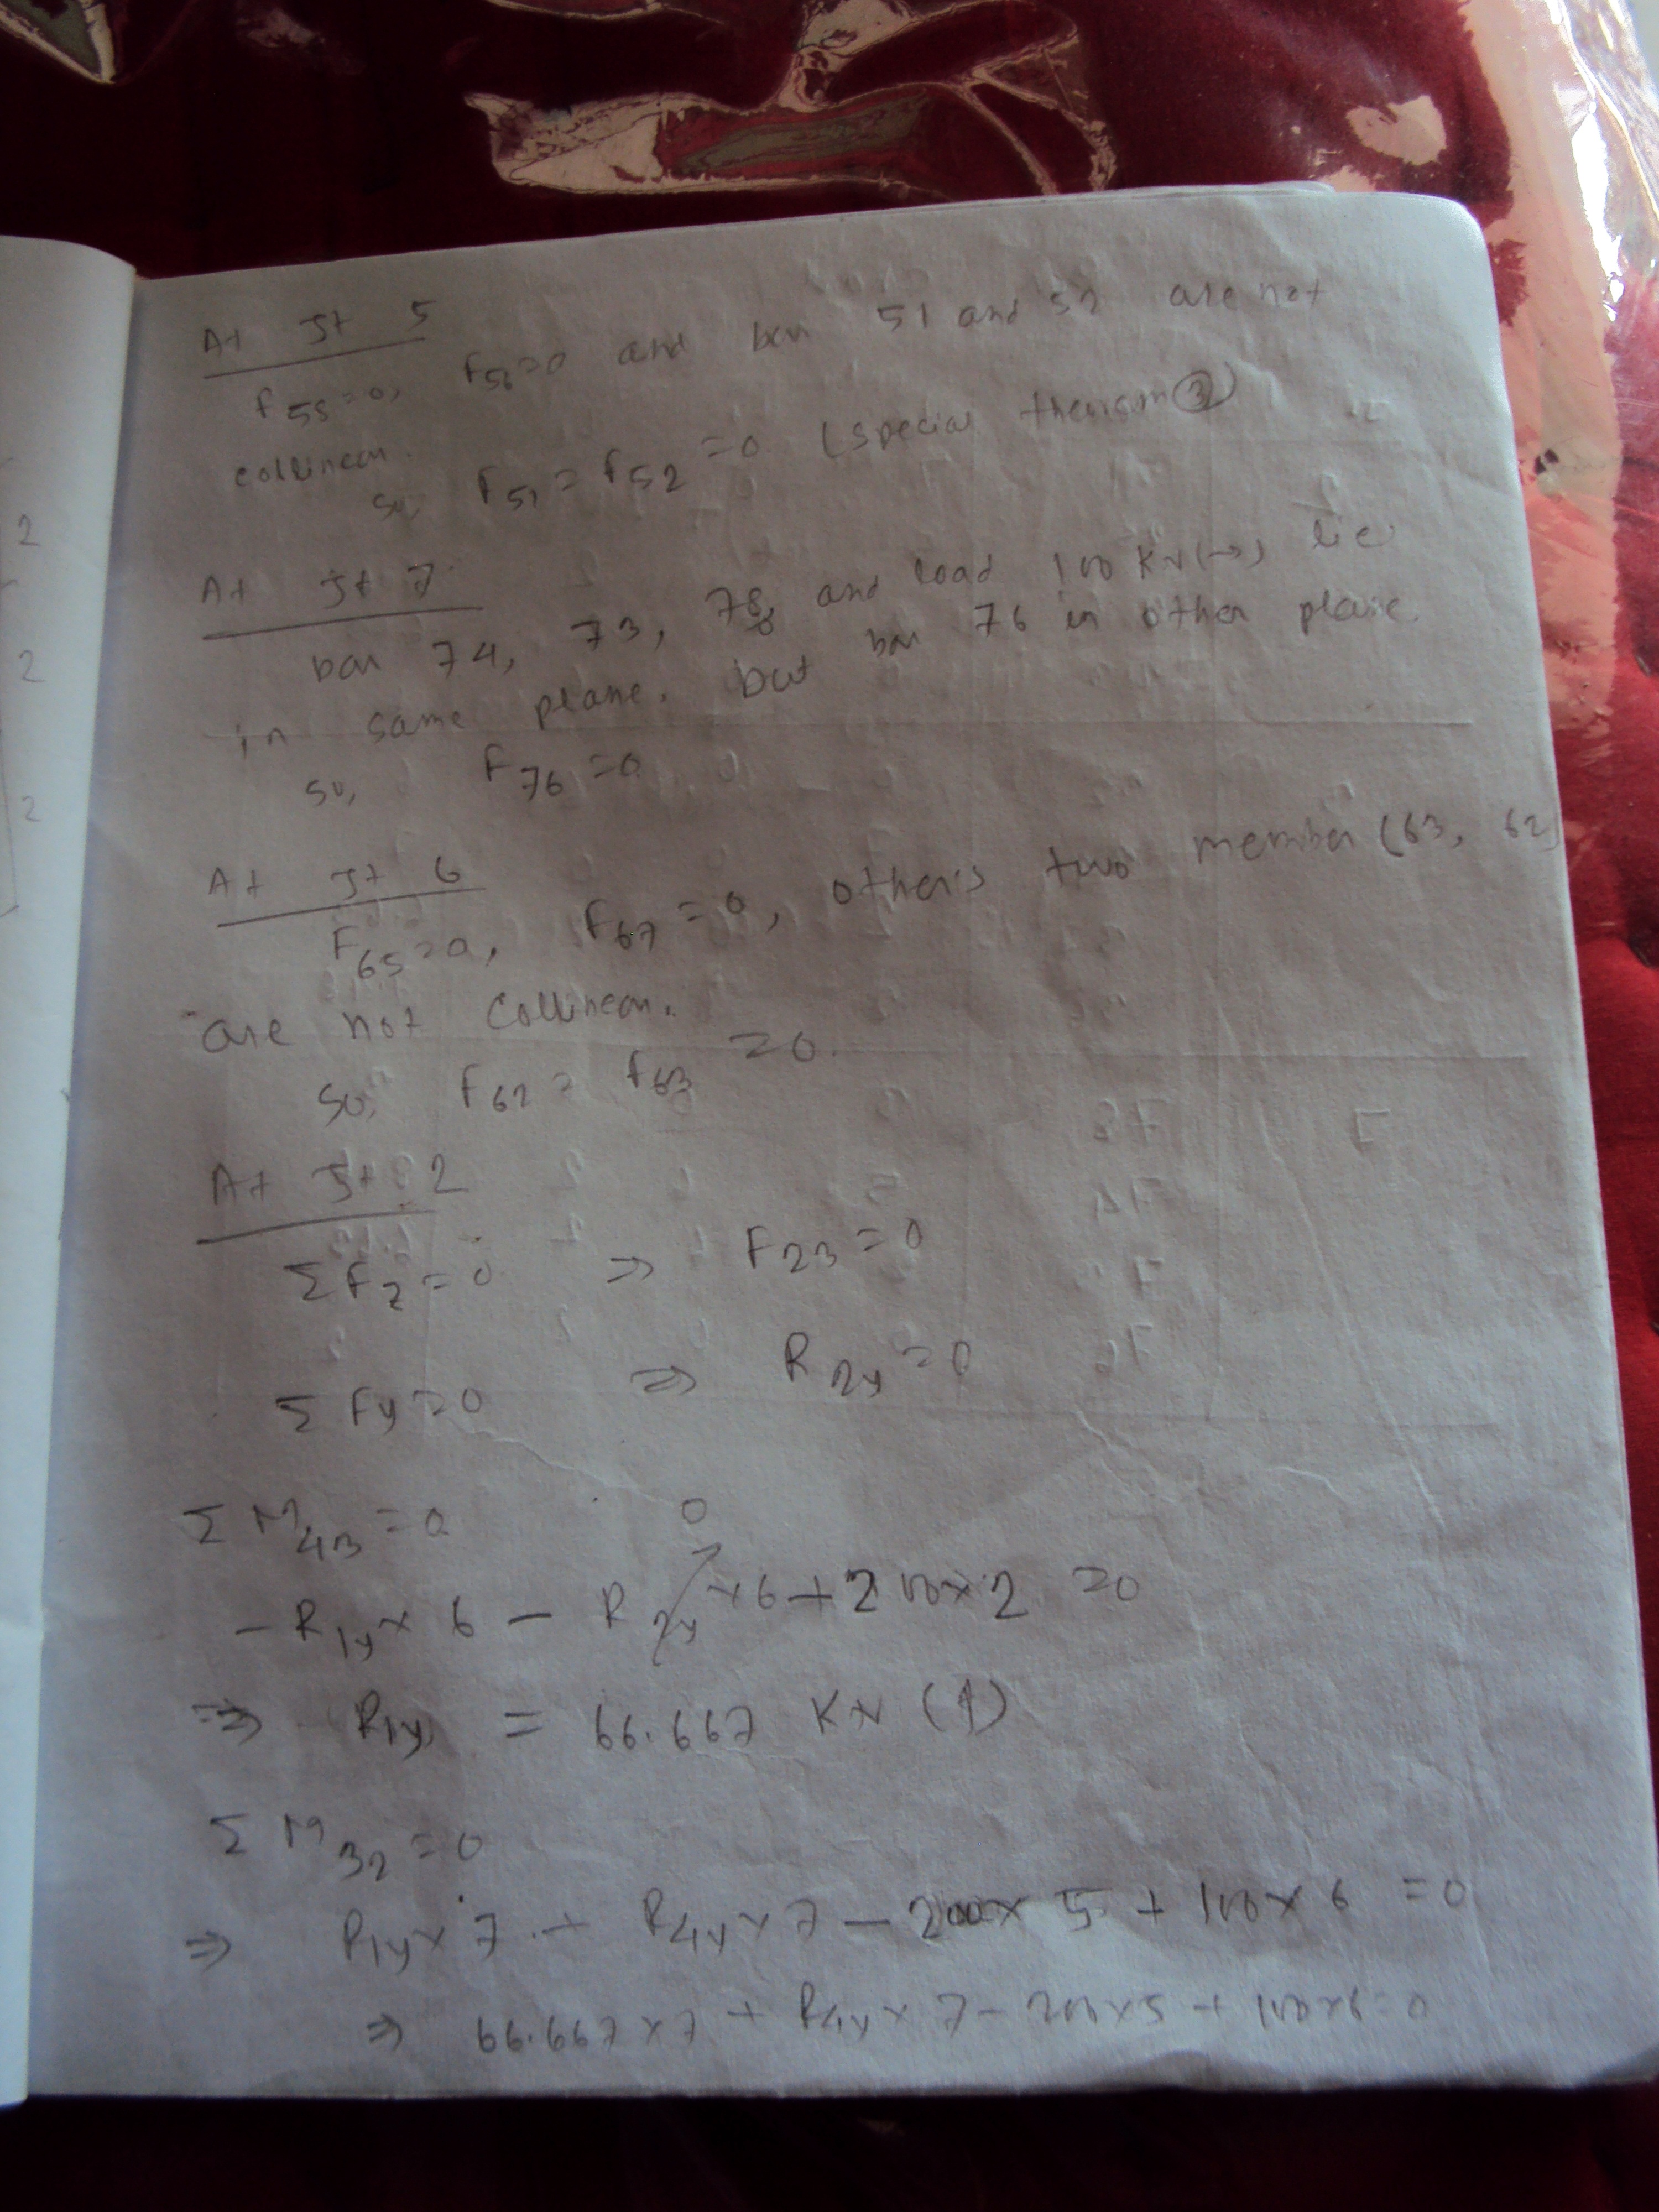 At Jt 5
F58=0, F56=0 and bar 51 and 52 are not
collinear.
so, F51 = F52 = 0 (special theorem ③)
At Jt 7
bar 74, 73, 78 and load 100 KN(→) lie
in same plane. but bar 76 in other plane.
so, F76 = 0
At Jt 6
F65=0, F67=0, other's two member (63, 62)
are not collinear.
so, F62 = F63 = 0.
At Jt. 2
ΣFz = 0 ⇒ F23 = 0
ΣFy = 0 ⇒ R2y = 0
ΣM43 = 0
0
- R1y × 6 - R2y × 6 + 200×2 = 0
⇒ R1y = 66.667 KN (↑)
ΣM32 = 0
⇒ R1y × 7 + R4y × 7 - 200 × 5 + 100 × 6 = 0
⇒ 66.667 × 7 + R4y × 7 - 200×5 + 100×6 = 0
2
2
2